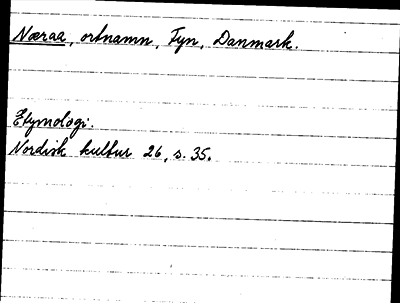 Næraa, ortnamn, Fyn, Danmark.
Etymologi.
Nordisk kultur 26, s. 35.